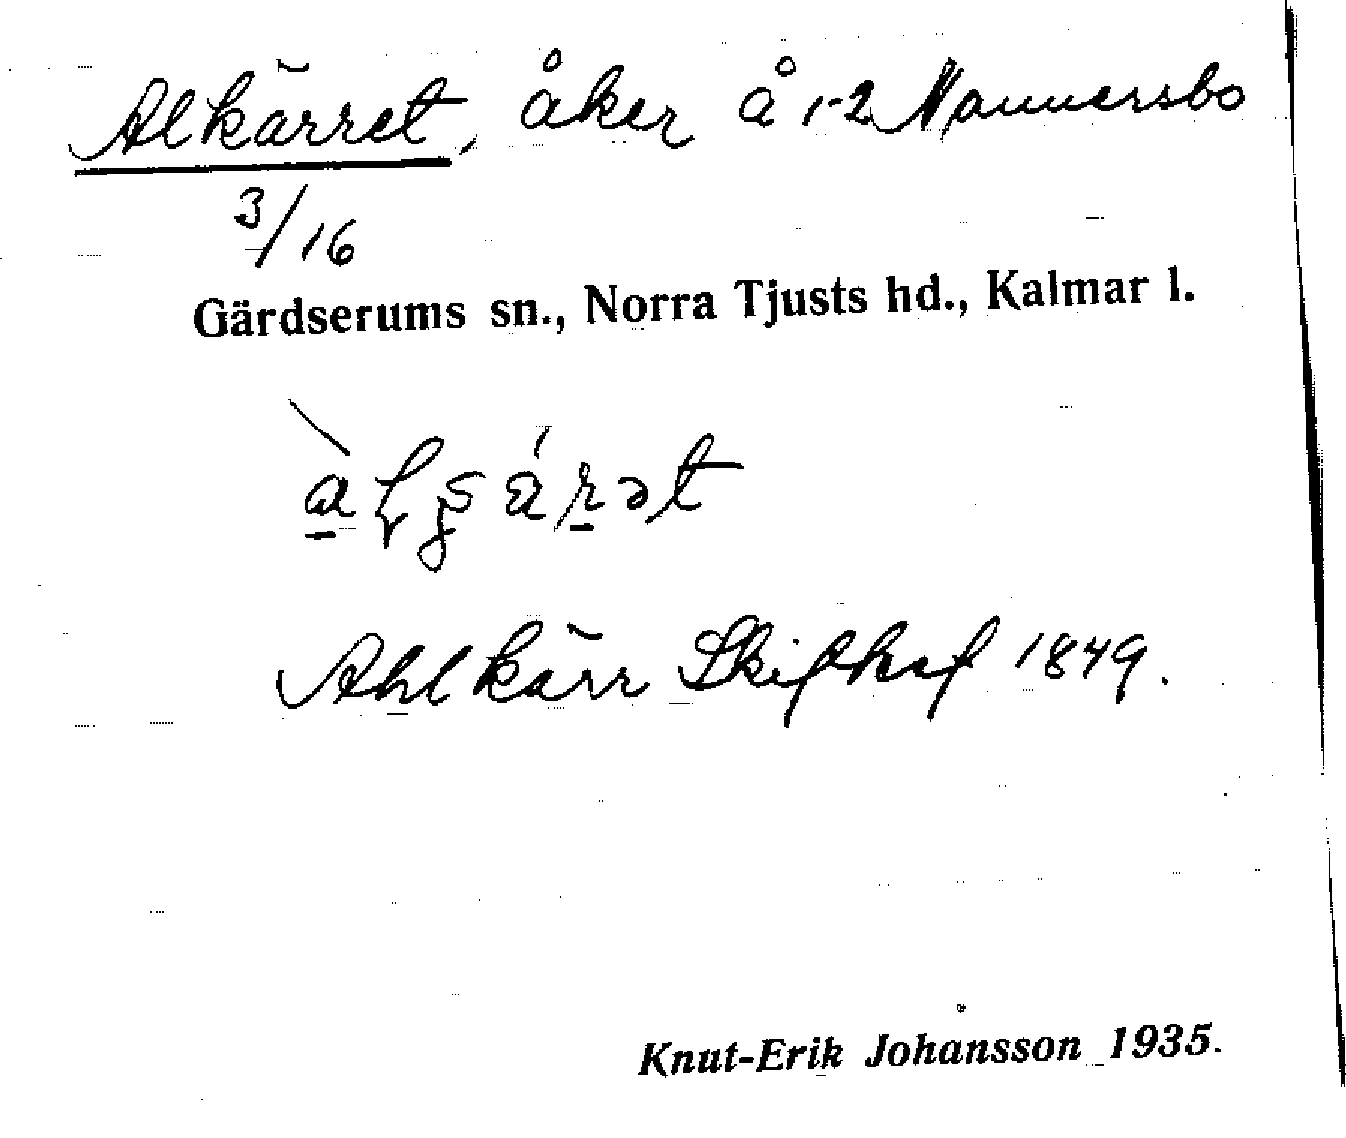 Alkärret, åker å 1-2 Mannersbo
3/16
Gärdserums sn., Norra Tjusts hd., Kalmar l.
Ahlkärr Skifthaf 1849.
Knut-Erik Johansson 1935.